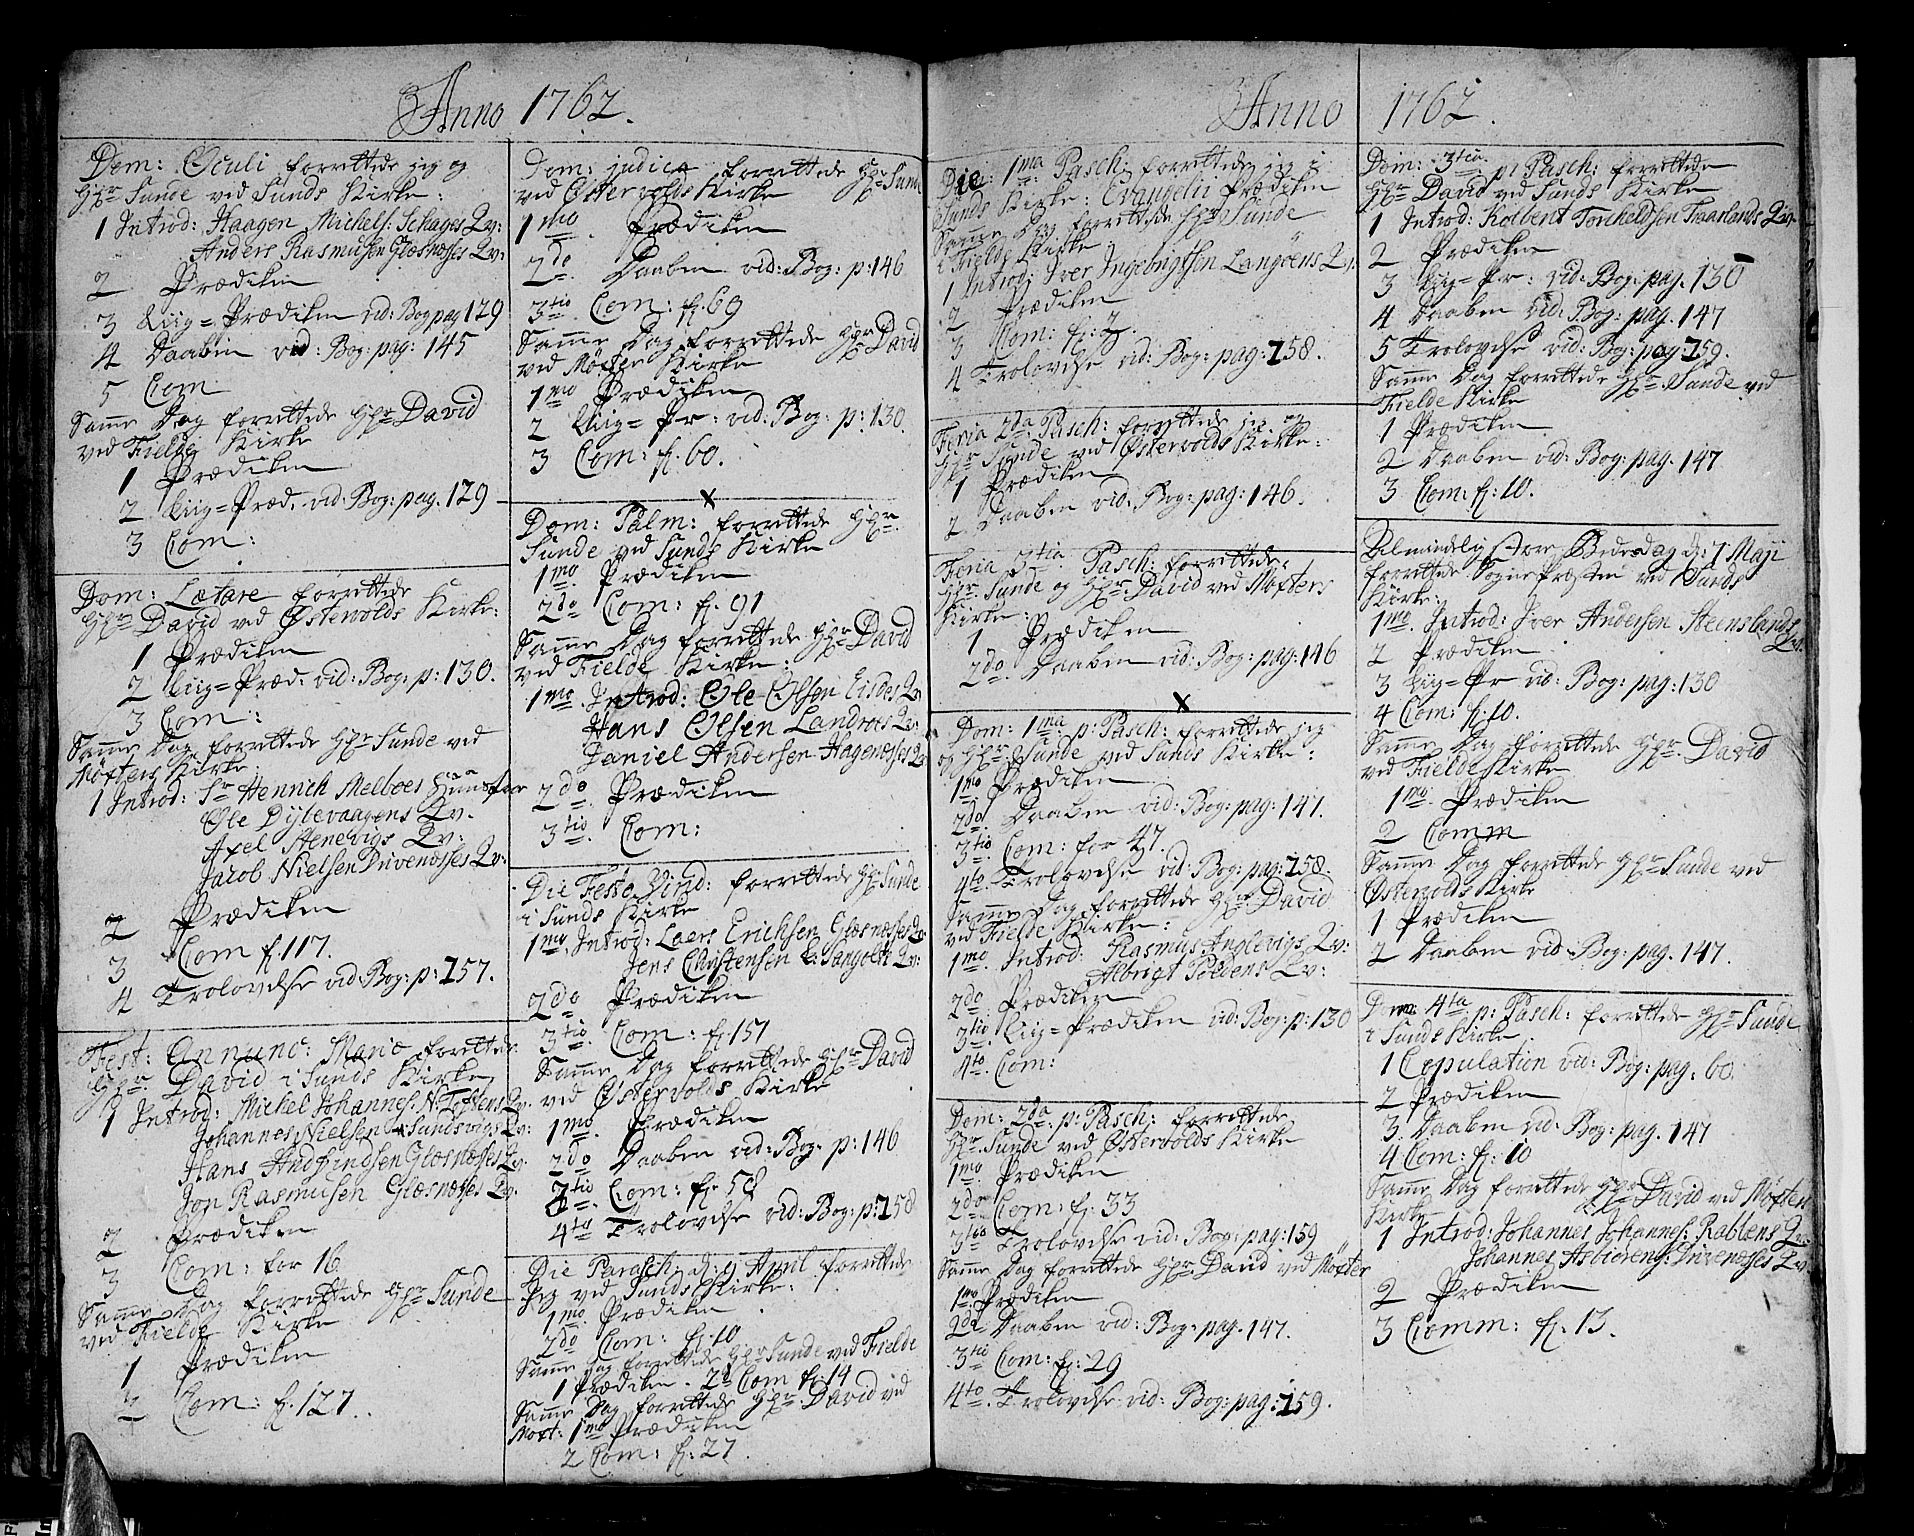 Anno 1762.
Dom: Oculi forrettede jeg og
Hr. Sunde ved Sunds Kirke:
1 Introd: Haagen Michels: Schages Qv:
Anders Rasmusen Glosnæsses Qv:
2 Prædiken
3 Liig=Prædiken vid: Bog pag 129
4 Daaben vid: Bog: pag: 145
5 Com
Samme Dag forrettede Hr David
ved Fielde Kirke
1 Prædiken
2 Liig=Præd. vid: Bog: pag. 129
3 Com:
Dom: Lætare forrettede
Hr David ved Østervolds Kirke:
1 Prædiken
2 Liig=Præd. vid: Bog: p: 130.
3 Com:
Samme Dag forrettede Hr Sunde ved
Møster Kirke
1 Introd: Sr Henrich Melboes
Ole Dylevaagens Qv.
Axel Stenevigs Qv:
Jacob Nielsen Duvenæsses Qv:
2 Prædiken
3 Com f. 117.
4 Trolovelse vid Bog: p: 157.
Fest: Annunc: Mariæ forrettede
Hr David i Sunds Kirke
1 Introd: Michel Johannes: N. Toftens Qv.
Johannes Nielsen Sundsvigs Qv:
Hans Andfindsen Glosnæsses Qv:
Jon Rasmusen Glosnæsses Qv:
2 Prædiken
3 Com: for 16
Samme Dag forrettede Hr Sunde
ved Fielde Kirke
1 Prædiken
2 Com: f. 127.
Dom: judica forrettede Hr Sunde
ved Østervolds Kirke
1mo. Prædiken
2do Daaben vid: Bog: p: 146
3tio Com: f. 69
Samme Dag forrettede Hr David
ved Møster Kirke
1mo Prædiken
2 Liig=Pr: vid: Bog: p: 130.
3 Com: f. 60.
x
Dom: Palm: forrettede Hr.
Sunde ved Sunds Kirke
1mo. Prædiken
2do Com: f. 91
Samme Dag forrettede Hr David
ved Fielde Kirke:
1mo. Introd: Ole Olsen Eides Qv
Hans Olsen Landroes Qv:
Daniel Andersen Hagenæsses Qv
2do. Prædiken
3tio. Com:
Die Festo Virid: forrettede Hr Sunde
i Sunds Kirke
1mo. Introd: Laers Erichsen Glosnæsses Qv
Jens Christensen Sangolts Qv:
2do Prædiken
3tio. Com: f. 157
Samme Dag forrettede Hr David
ved Østervolds Kirke
1mo. Prædiken
2do Daaben vid: Bog: p: 146
3tio. Com: f. 58
4to Trolovelse vid: Bog: p: 158
Die Parasch: d: 9 April forrettede
Jeg ved Sunds Kirke:
1mo. Prædiken
2do Com: f. 10
Samme Dag forrettede Hr Sunde ved Fielde
1 Prædiken. 2d Com f. 14
Samme Dag forrettede Hr David ved
Møst: 1mo Prædiken
2 Com: f. 27
Anno 1762.
Die: 1ma Pasch: forrettede jeg i
Sunds Kirke: Evangelii Prædiken
Samme Dag forrettede Hr Sunde
i Fielde Kirke
1 Introd: Iver Ingebrigtsen Langøens Qv:
2 Prædiken
3 Com: f. 7.
4 Trolovelse vid: Bog: pag: 158.
Feria 2da. Pasch: forrettede jeg og
Hr Sunde ved Østervolds Kirke:
1 Prædiken
2. Daaben vid: Bog: pag: 146.
Feria 3tia Pasch: forrettede
Hr Sunde og Hr: David ved Møsters
Kirke:
1 Prædiken
2do. Daaben vid: Bog: pag: 146
x
Dom: 1ma p: Pasch: forrettede jeg
og Hr Sunde ved Sunds Kirke:
1mo Prædiken
2do. Daaben vid: Bog: pag: 147.
3tio. Com: for 47.
4to. Trolovelse vid: Bog: pag: 158.
Samme Dag forrettede Hr David
ved Fielde Kirke:
1mo. Introd: Rasmus Anglevigs Qv:
Albrigt Poldens Qv:
2do Prædiken
3tio. Liig=Prædiken vid: Bog: p: 130
4to. Com:
Dom: 2da. p: Pasch: forrettede
Hr. Sunde ved Østervolds Kirke
1mo Prædiken
2do Com: f. 33
3tio Trolovelse vid: Bog: pag: 159
Samme Dag forrettede Hr: David ved Møster
1mo. Prædiken
2do Daaben vid: Bog: pag. 147.
3tio Com: f: 29
4to. Trolovelse vid: Bog: pag: 159.
Dom: 3tia p: Pasch: forrettede
Hr David ved Sunds Kirke
1 Introd: Kolbent Torkeldsen Taarlands Qv.
2 Prædiken
3 Liig=Pr: vid: Bog: pag. 130
4 Daaben vid: Bog: pag. 147
5 Trolovelse vid: Bog: pag 159.
Samme Dag forrettede Hr. Sunde ved
Fielde Kirke
1 Prædiken
2 Daaben vid: Bog: pag. 147
3 Com: f: 10.
Almindelig store Bededag d: 7 Maji
forrettede Sogne Præsten ved Sunds
Kirke:
1mo. Introd: Iver Andersen Steenslands
Qv.
2 Prædiken
3 Liig=Pr vid: Bog: pag: 130
4 Com: f. 10.
Samme Dag forrettede Hr David
ved Fielde Kirke
1mo. Prædiken
2 Comm
Samme Dag forrettede Hr Sunde ved
Østervolds Kirke
1 Prædiken
2 Daaben vid: Bog: pag. 147.
Dom: 4ta p: Pasch: forrettede Hr Sunde
i Sunds Kirke
1 Copulation vid: Bog: pag. 60.
2 Prædiken
3. Daaben vid: Bog: pag. 147
4 Com: f: 10
Samme Dag forrettede Hr David ved Møster
Kirke
1 Introd: Johannes Johannes: Rabbens Qv:
Johannes Asbiøreng: Duvenæsses Qv.
2 Prædiken
3 Comm: f. 13.